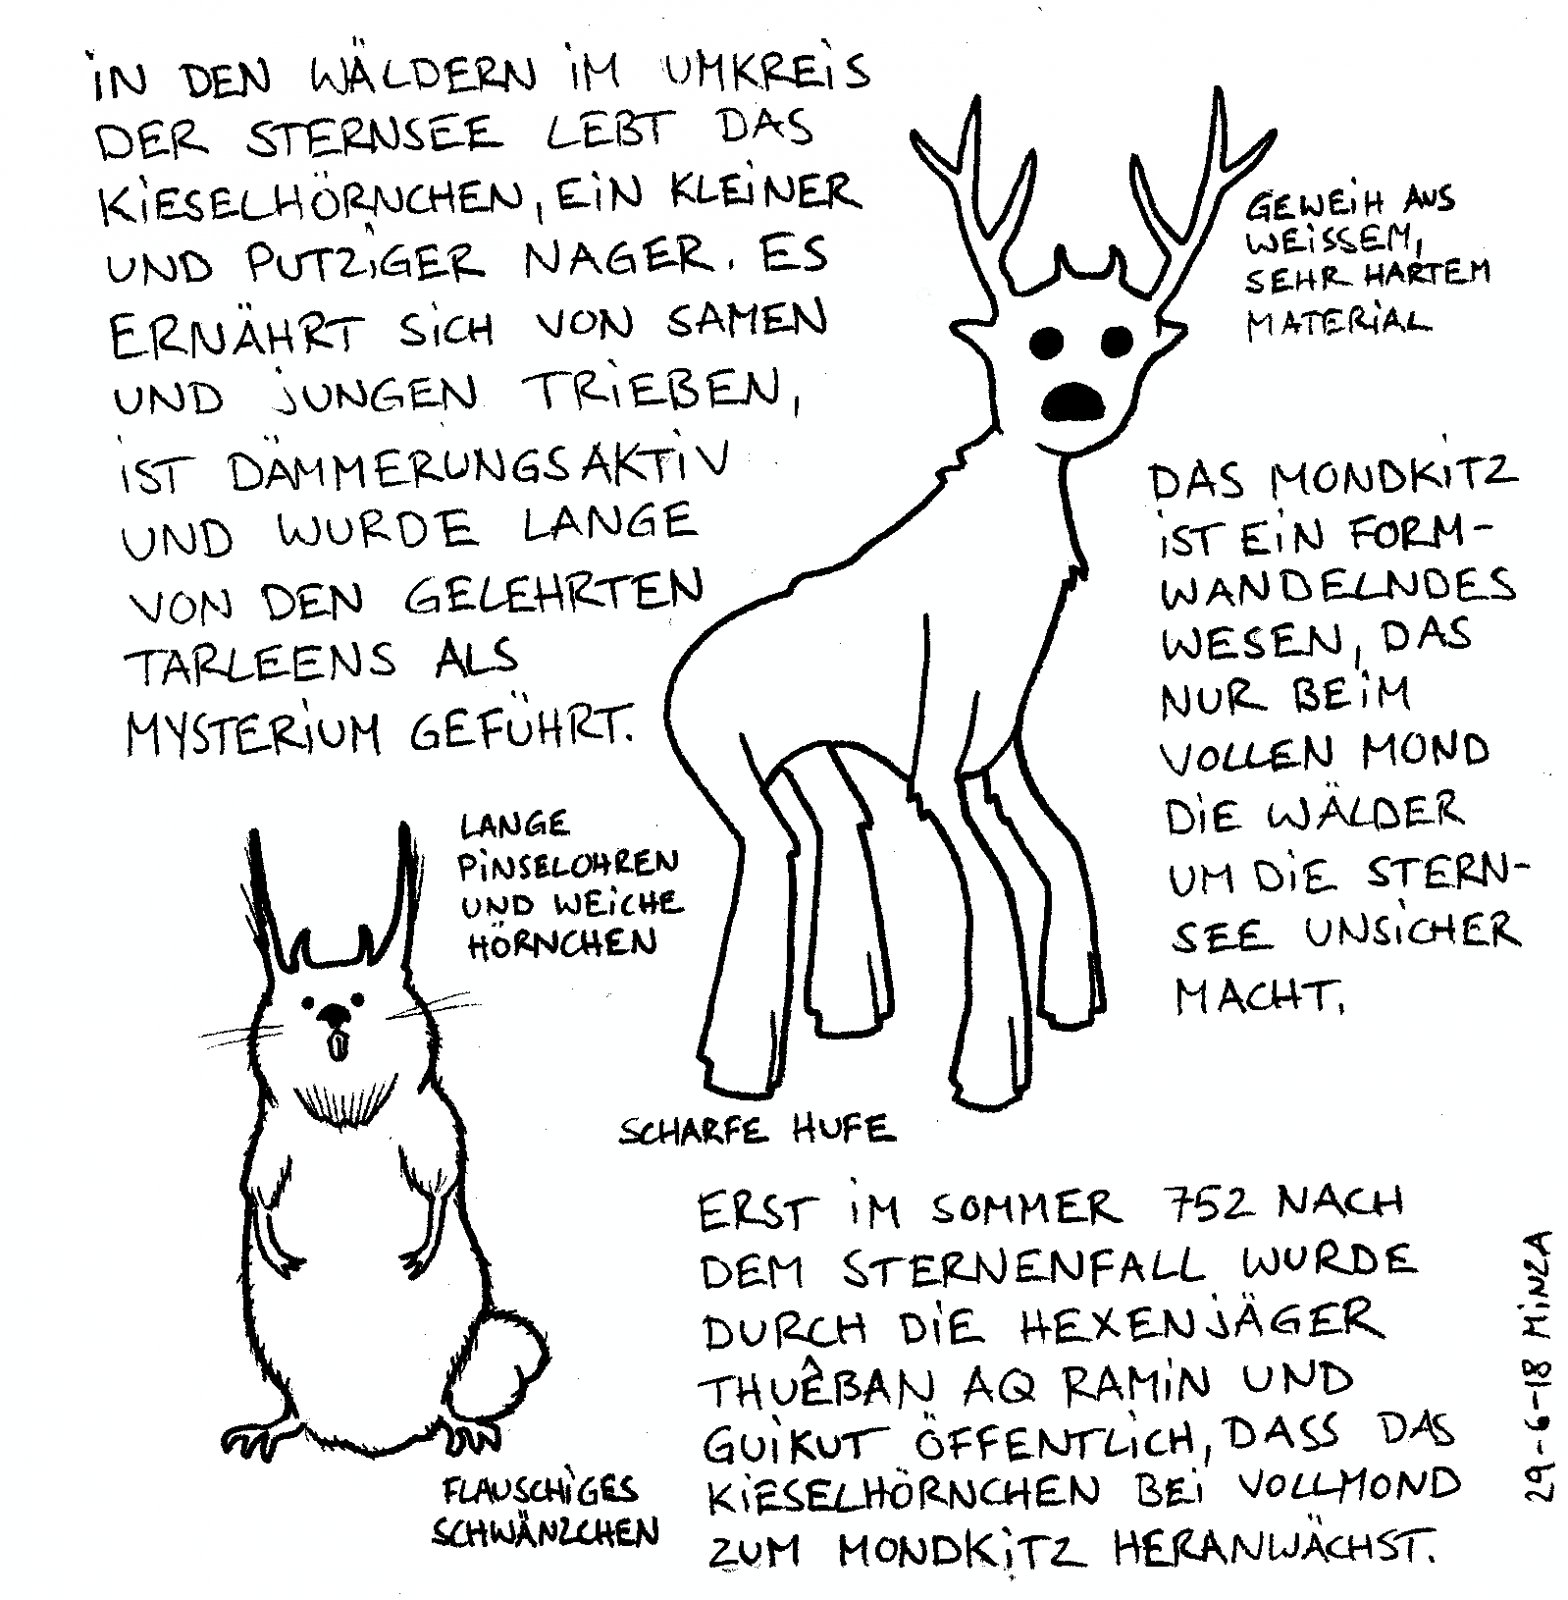 IN DEN WÄLDERN IM UMKREIS
DER STERNSEE LEBT DAS
KIESELHÖRNCHEN, EIN KLEINER
UND PUTZIGER NAGER. ES
ERNÄHRT SICH VON SAMEN
UND JUNGEN TRIEBEN,
IST DÄMMERUNGSAKTIV
UND WURDE LANGE
VON DEN GELEHRTEN
TARLEENS ALS
MYSTERIUM GEFÜHRT.
GEWEIH AUS
WEISSEM,
SEHR HARTEM
MATERIAL
DAS MONDKITZ
IST EIN FORM-
WANDELNDES
WESEN, DAS
NUR BEIM
VOLLEN MOND
DIE WÄLDER
UM DIE STERN-
SEE UNSICHER
MACHT.
LANGE
PINSELOHREN
UND WEICHE
HÖRNCHEN
SCHARFE HUFE
FLAUSCHIGES
SCHWÄNZCHEN
ERST IM SOMMER 752 NACH
DEM STERNENFALL WURDE
DURCH DIE HEXENJÄGER
THUÊBAN AQ RAMIN UND
GUIKUT ÖFFENTLICH, DASS DAS
KIESELHÖRNCHEN BEI VOLLMOND
ZUM MONDKITZ HERANWÄCHST.
29-6-18 MINZA